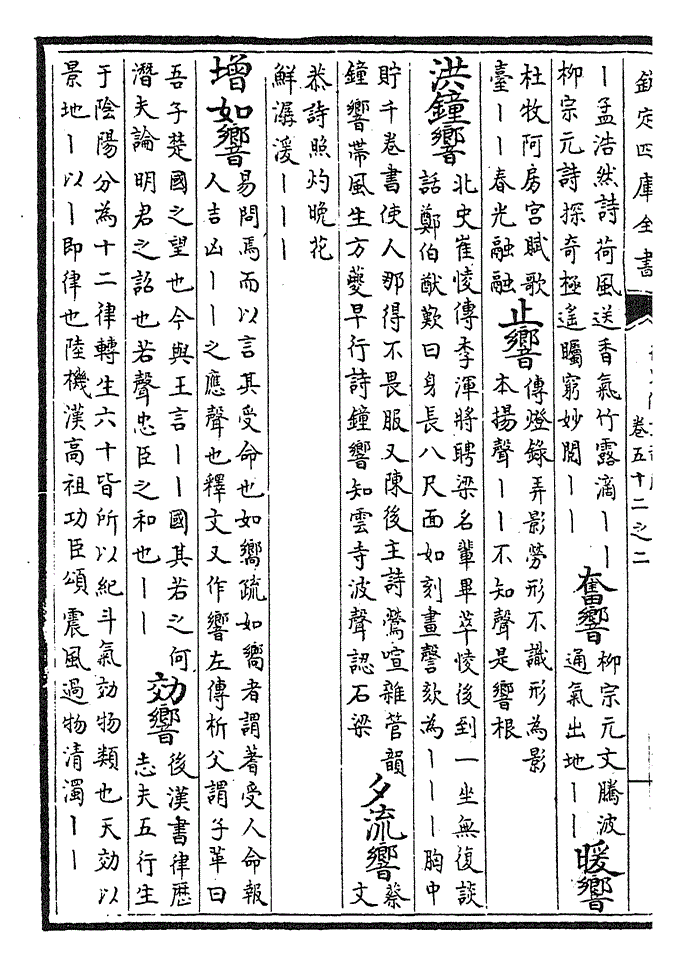 欽定四庫全書
卷五十二之二
丨孟浩然詩荷風送香氣竹露滴丨丨
柳宗元詩探奇極遥矚窮妙閲丨丨
奮響
柳宗元文騰波
通氣出地丨丨
暖響
杜牧阿房宫賦歌
臺丨丨春光融融
止響
傳燈録弄影勞形不識形為影
本揚聲丨丨不知聲是響根
洪鐘響
北史崔㥄傳李渾將聘梁名輩畢萃㥄後到一坐無復談
話鄭伯猷歎曰身長八尺面如刻畫謦欬為丨丨丨胸中
貯千卷書使人那得不畏服又陳後主詩鶯喧雜管韻
鐘響帶風生方夔早行詩鐘響知雲寺波聲認石梁
夕流響
蔡
文
恭詩照灼晚花
鮮潺湲丨丨丨
增如響
易問焉而以言其受命也如嚮疏如嚮者謂蓍受人命報
人吉凶丨丨之應聲也釋文又作響左傳析父謂子革曰
吾子楚國之望也今與王言丨丨國其若之何
潛夫論明君之詔也若聲忠臣之和也丨丨
効響
後漢書律歷
志夫五行生
于陰陽分為十二律轉生六十皆所以紀斗氣効物類也天効以
景地丨以丨即律也陸機漢高祖功臣頌震風過物清濁丨丨